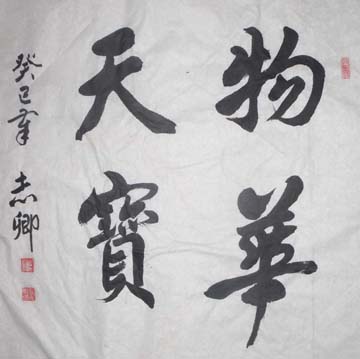 物華
天寶
癸巳年 志卿